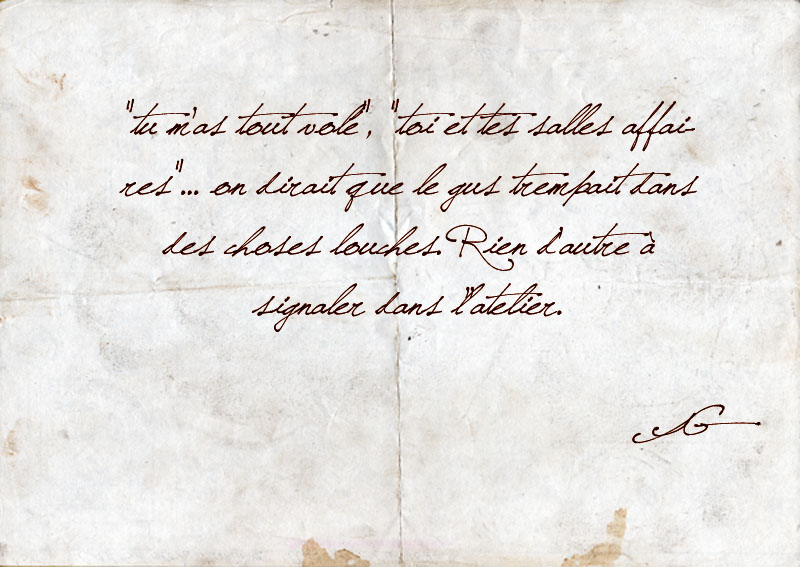 "tu m'as tout volé", "toi et tes salles affai-
res"... on dirait que le gus trempait dans
des choses louches. Rien d'autre à
signaler dans l'atelier.
G